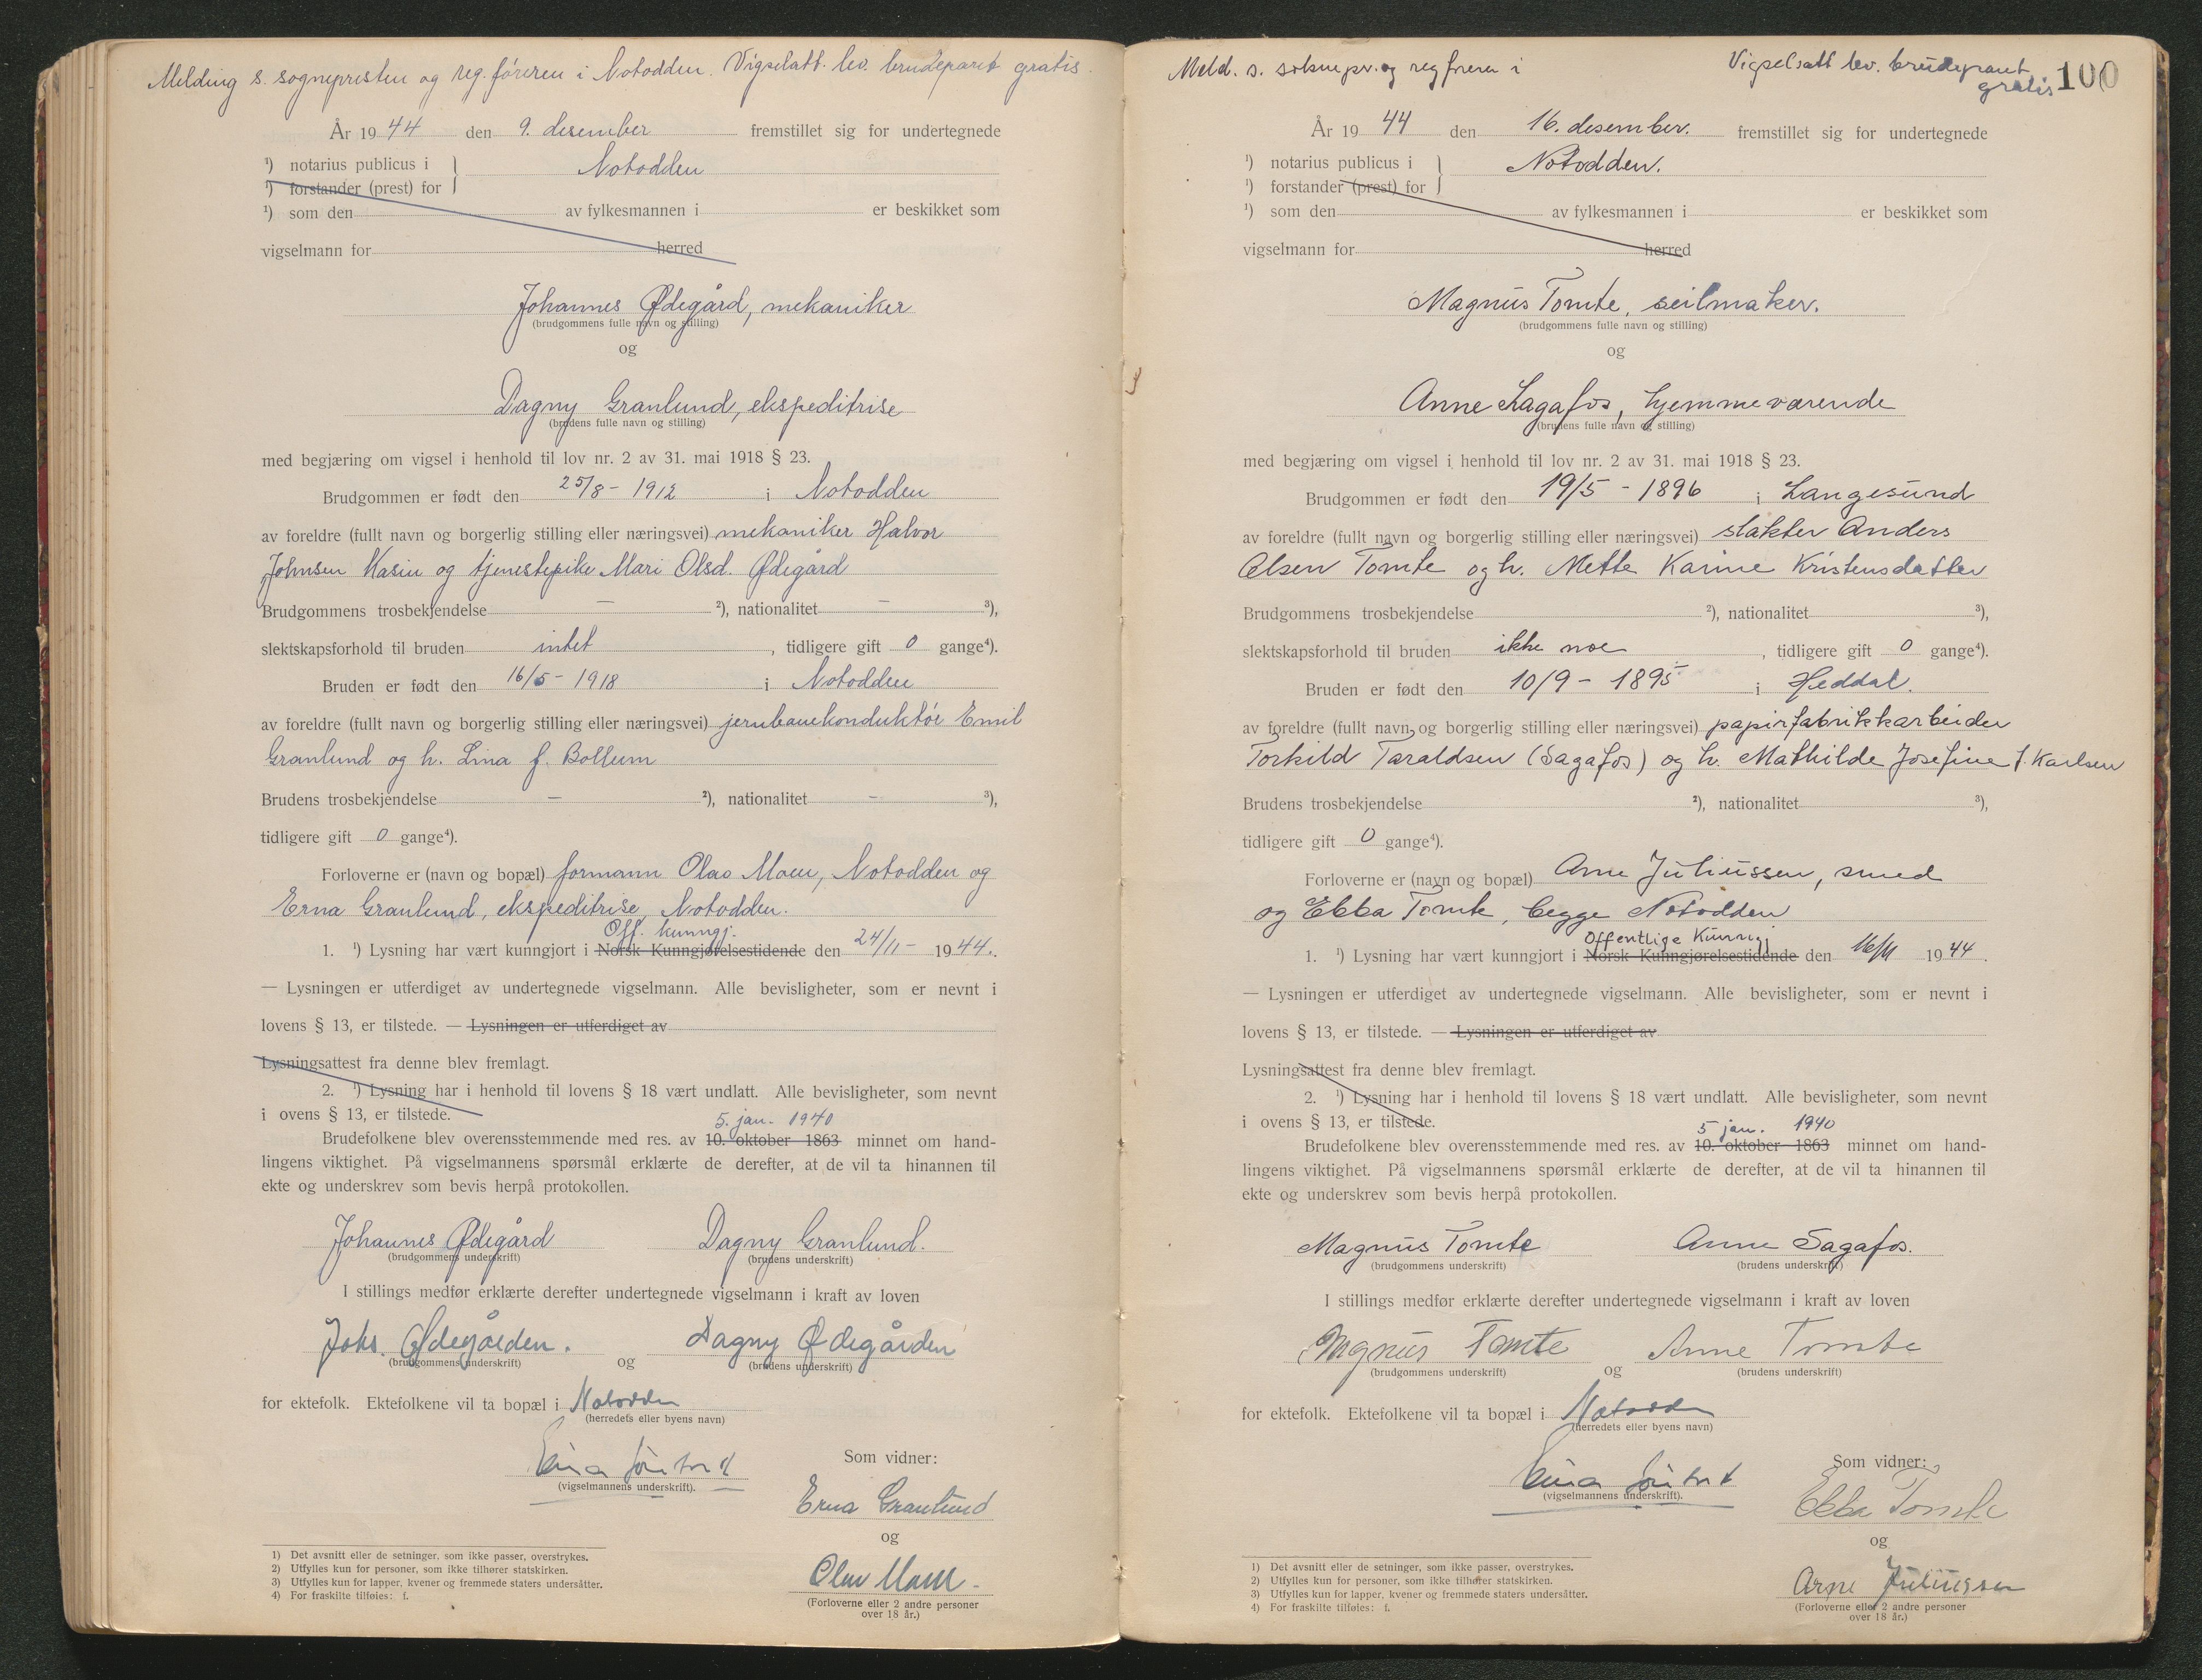 Melding s. sognepresten og reg.føreren i Notodden. Vigselatt. lev. brudeparet gratis.
År 1944 den 9. desember fremstillet sig for undertegnede
¹) notarius publicus i } Notodden
¹) forstander (prest) for
¹) som den av fylkesmannen i er beskikket som
vigselmann for herred
Johannes Ødegård, mekaniker
(brudgommens fulle navn og stilling)
og
Dagny Granlund, ekspeditrise
(brudens fulle navn og stilling)
med begjæring om vigsel i henhold til lov nr. 2 av 31. mai 1918 § 23.
Brudgommen er født den 25/8 - 1912 i Notodden
av foreldre (fullt navn og borgerlig stilling eller næringsvei) mekaniker Halvor
Johnsen Kasin og tjenestepike Mari Olsd. Ødegård
Brudgommens trosbekjendelse — ²), nationalitet — ³),
slektskapsforhold til bruden intet, tidligere gift 0 gange⁴).
Bruden er født den 16/5 - 1918 i Notodden
av foreldre (fullt navn og borgerlig stilling eller næringsvei) jernbanekonduktør Emil
Granlund og h. Lina f. Bollum
Brudens trosbekjendelse — ²), nationalitet — ³),
tidligere gift 0 gange⁴).
Forloverne er (navn og bopæl) formann Olav Moen, Notodden og
Erna Granlund, ekspeditrise, Notodden.
Off. kunngj.
1. ¹) Lysning har vært kunngjort i Norsk Kunngjørelsestidende den 24/11 - 1944.
— Lysningen er utferdiget av undertegnede vigselmann. Alle bevisligheter, som er nevnt i
lovens § 13, er tilstede. — Lysningen er utferdiget av
Lysningsattest fra denne blev fremlagt.
2. ¹) Lysning har i henhold til lovens § 18 vært undlatt. Alle bevisligheter, som nevnt
i ovens § 13, er tilstede.
5. jan. 1940
Brudefolkene blev overensstemmende med res. av 10. oktober 1863 minnet om hand-
lingens viktighet. På vigselmannens spørsmål erklærte de derefter, at de vil ta hinannen til
ekte og underskrev som bevis herpå protokollen.
Johannes Ødegård Dagny Granlund.
(brudgommens underskrift) (brudens underskrift)
I stillings medfør erklærte derefter undertegnede vigselmann i kraft av loven
Johs. Ødegården. og Dagny Ødegården
(brudgommens underskrift) (brudens underskrift)
for ektefolk. Ektefolkene vil ta bopæl i Notodden
(herredets eller byens navn)
(vigselmannens underskrift).
Som vidner:
Erna Granlund
og
Olav Moen.
(Forloverne eller 2 andre personer
over 18 år.)
1) Det avsnitt eller de setninger, som ikke passer, overstrykes.
2) Utfylles kun for personer, som ikke tilhører statskirken.
3) Utfylles kun for lapper, kvener og fremmede staters undersåtter.
4) For fraskilte tilføies: f.
Meld. s. soknepr. og regføreren i Vigselsatt lev. brudeparet
gratis 100
År 1944 den 16. desember. fremstillet sig for undertegnede
¹) notarius publicus i } Notodden.
¹) forstander (prest) for
¹) som den av fylkesmannen i er beskikket som
vigselmann for herred
Magnus Tomte, seilmaker.
(brudgommens fulle navn og stilling)
og
Anne Sagafos, hjemmeværende
(brudens fulle navn og stilling)
med begjæring om vigsel i henhold til lov nr. 2 av 31. mai 1918 § 23.
Brudgommen er født den 19/5 - 1896 i Langesund
av foreldre (fullt navn og borgerlig stilling eller næringsvei) slakter Anders
Olsen Tomte og h. Mette Karine Kristensdatter
Brudgommens trosbekjendelse ²), nationalitet ³),
slektskapsforhold til bruden ikke noe, tidligere gift 0 gange⁴).
Bruden er født den 10/9 - 1895 i Heddal.
av foreldre (fullt navn og borgerlig stilling eller næringsvei) papirfabrikkarbeider
Torkild Taraldsen (Sagafos) og h. Mathilde Josefine f. Karlsen
Brudens trosbekjendelse ²), nationalitet ³),
tidligere gift 0 gange⁴).
Forloverne er (navn og bopæl) Arne Juliussen, smed
og Ebba Tomte, begge Notodden
Offentlige Kunngj
1. ¹) Lysning har vært kunngjort i Norsk Kunngjørelsestidende den 16/11 1944.
— Lysningen er utferdiget av undertegnede vigselmann. Alle bevisligheter, som er nevnt i
lovens § 13, er tilstede. — Lysningen er utferdiget av
Lysningsattest fra denne blev fremlagt.
2. ¹) Lysning har i henhold til lovens § 18 vært undlatt. Alle bevisligheter, som nevnt
i ovens § 13, er tilstede.
5 jan. 1940
Brudefolkene blev overensstemmende med res. av 10. oktober 1863 minnet om hand-
lingens viktighet. På vigselmannens spørsmål erklærte de derefter, at de vil ta hinannen til
ekte og underskrev som bevis herpå protokollen.
Magnus Tomte Anne Sagafos.
(brudgommens underskrift) (brudens underskrift)
I stillings medfør erklærte derefter undertegnede vigselmann i kraft av loven
Magnus Tomte og Anne Tomte
(brudgommens underskrift) (brudens underskrift)
for ektefolk. Ektefolkene vil ta bopæl i Notodden
(herredets eller byens navn)
(vigselmannens underskrift).
Som vidner:
Ebba Tomte
og
Arne Juliussen
(Forloverne eller 2 andre personer
over 18 år.)
1) Det avsnitt eller de setninger, som ikke passer, overstrykes.
2) Utfylles kun for personer, som ikke tilhører statskirken.
3) Utfylles kun for lapper, kvener og fremmede staters undersåtter.
4) For fraskilte tilføies: f.